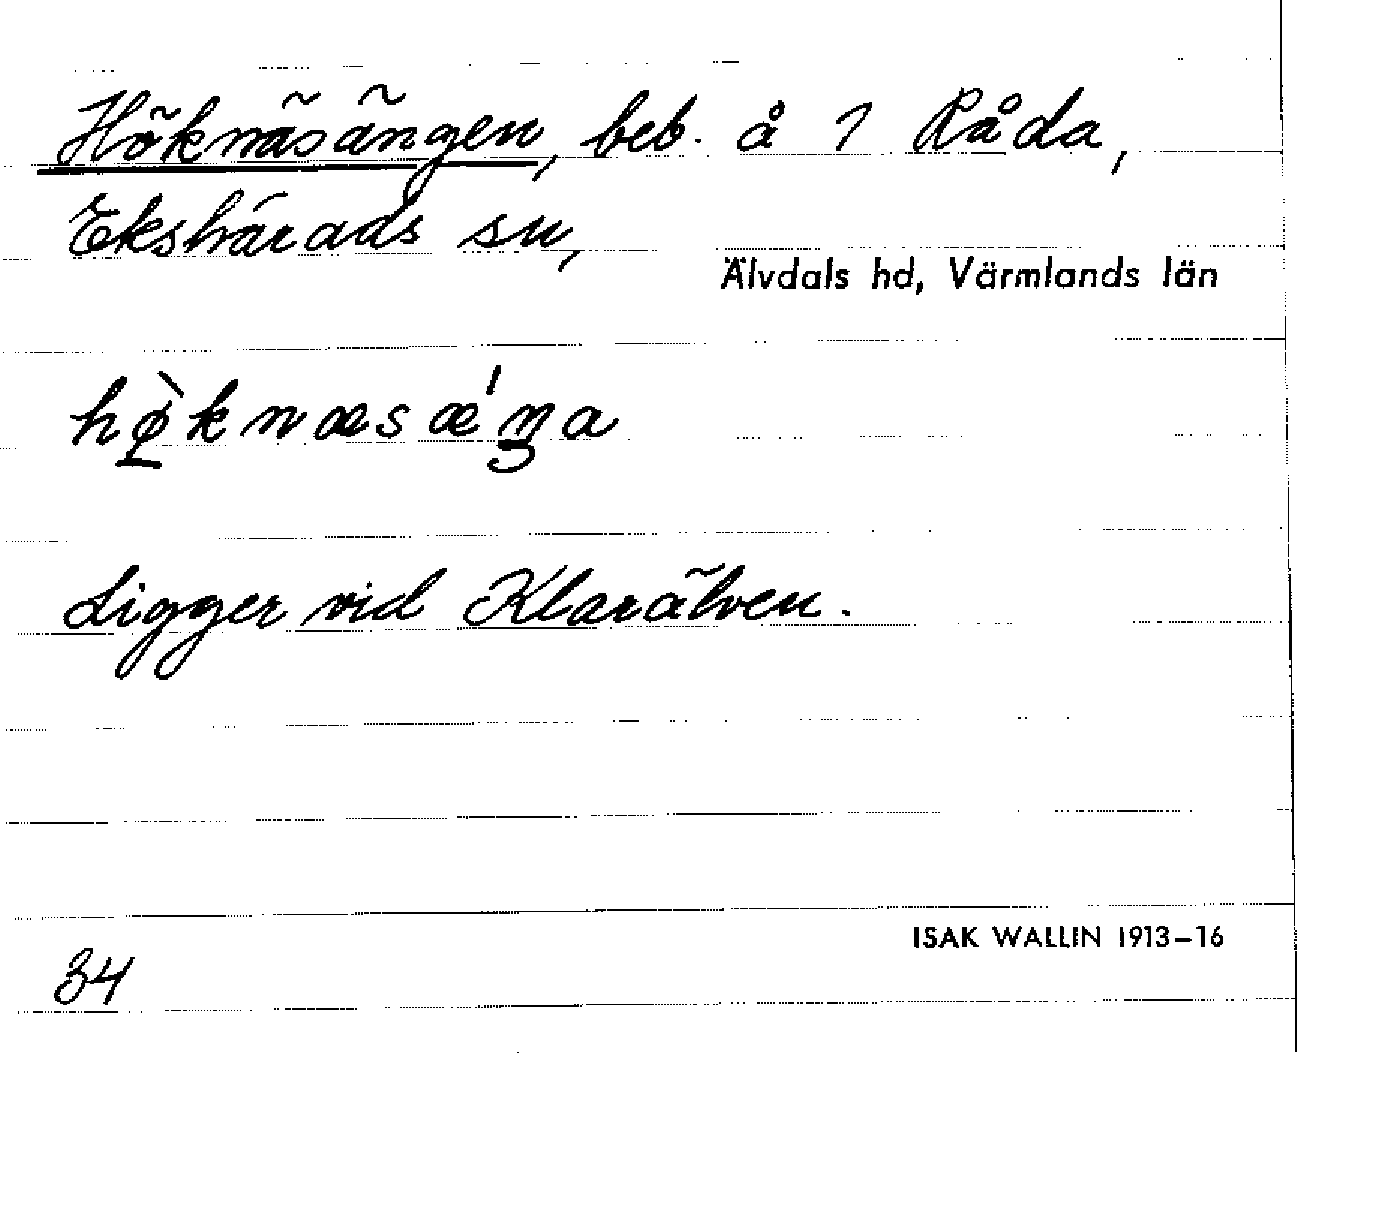 Höknäsängen, beb. å 1 Råda,
Ekshärads sn,
Älvdals hd, Värmlands län
hø̀knæsæ´ŋa
Ligger vid Klarälven.
ISAK WALLIN 1913–16
34